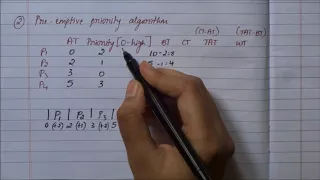 ② Pre-emptive priority algorithm
(CT-AT) (TAT-BT)
AT Priority [0-high] BT CT TAT WT
P1 0 2 10-2=8
P2 2 1 5-1=4
P3 3 0
P4 5 3
| P1 | P2 | P3 |
0 (+2) 2 (+1) 3 (+2) 5